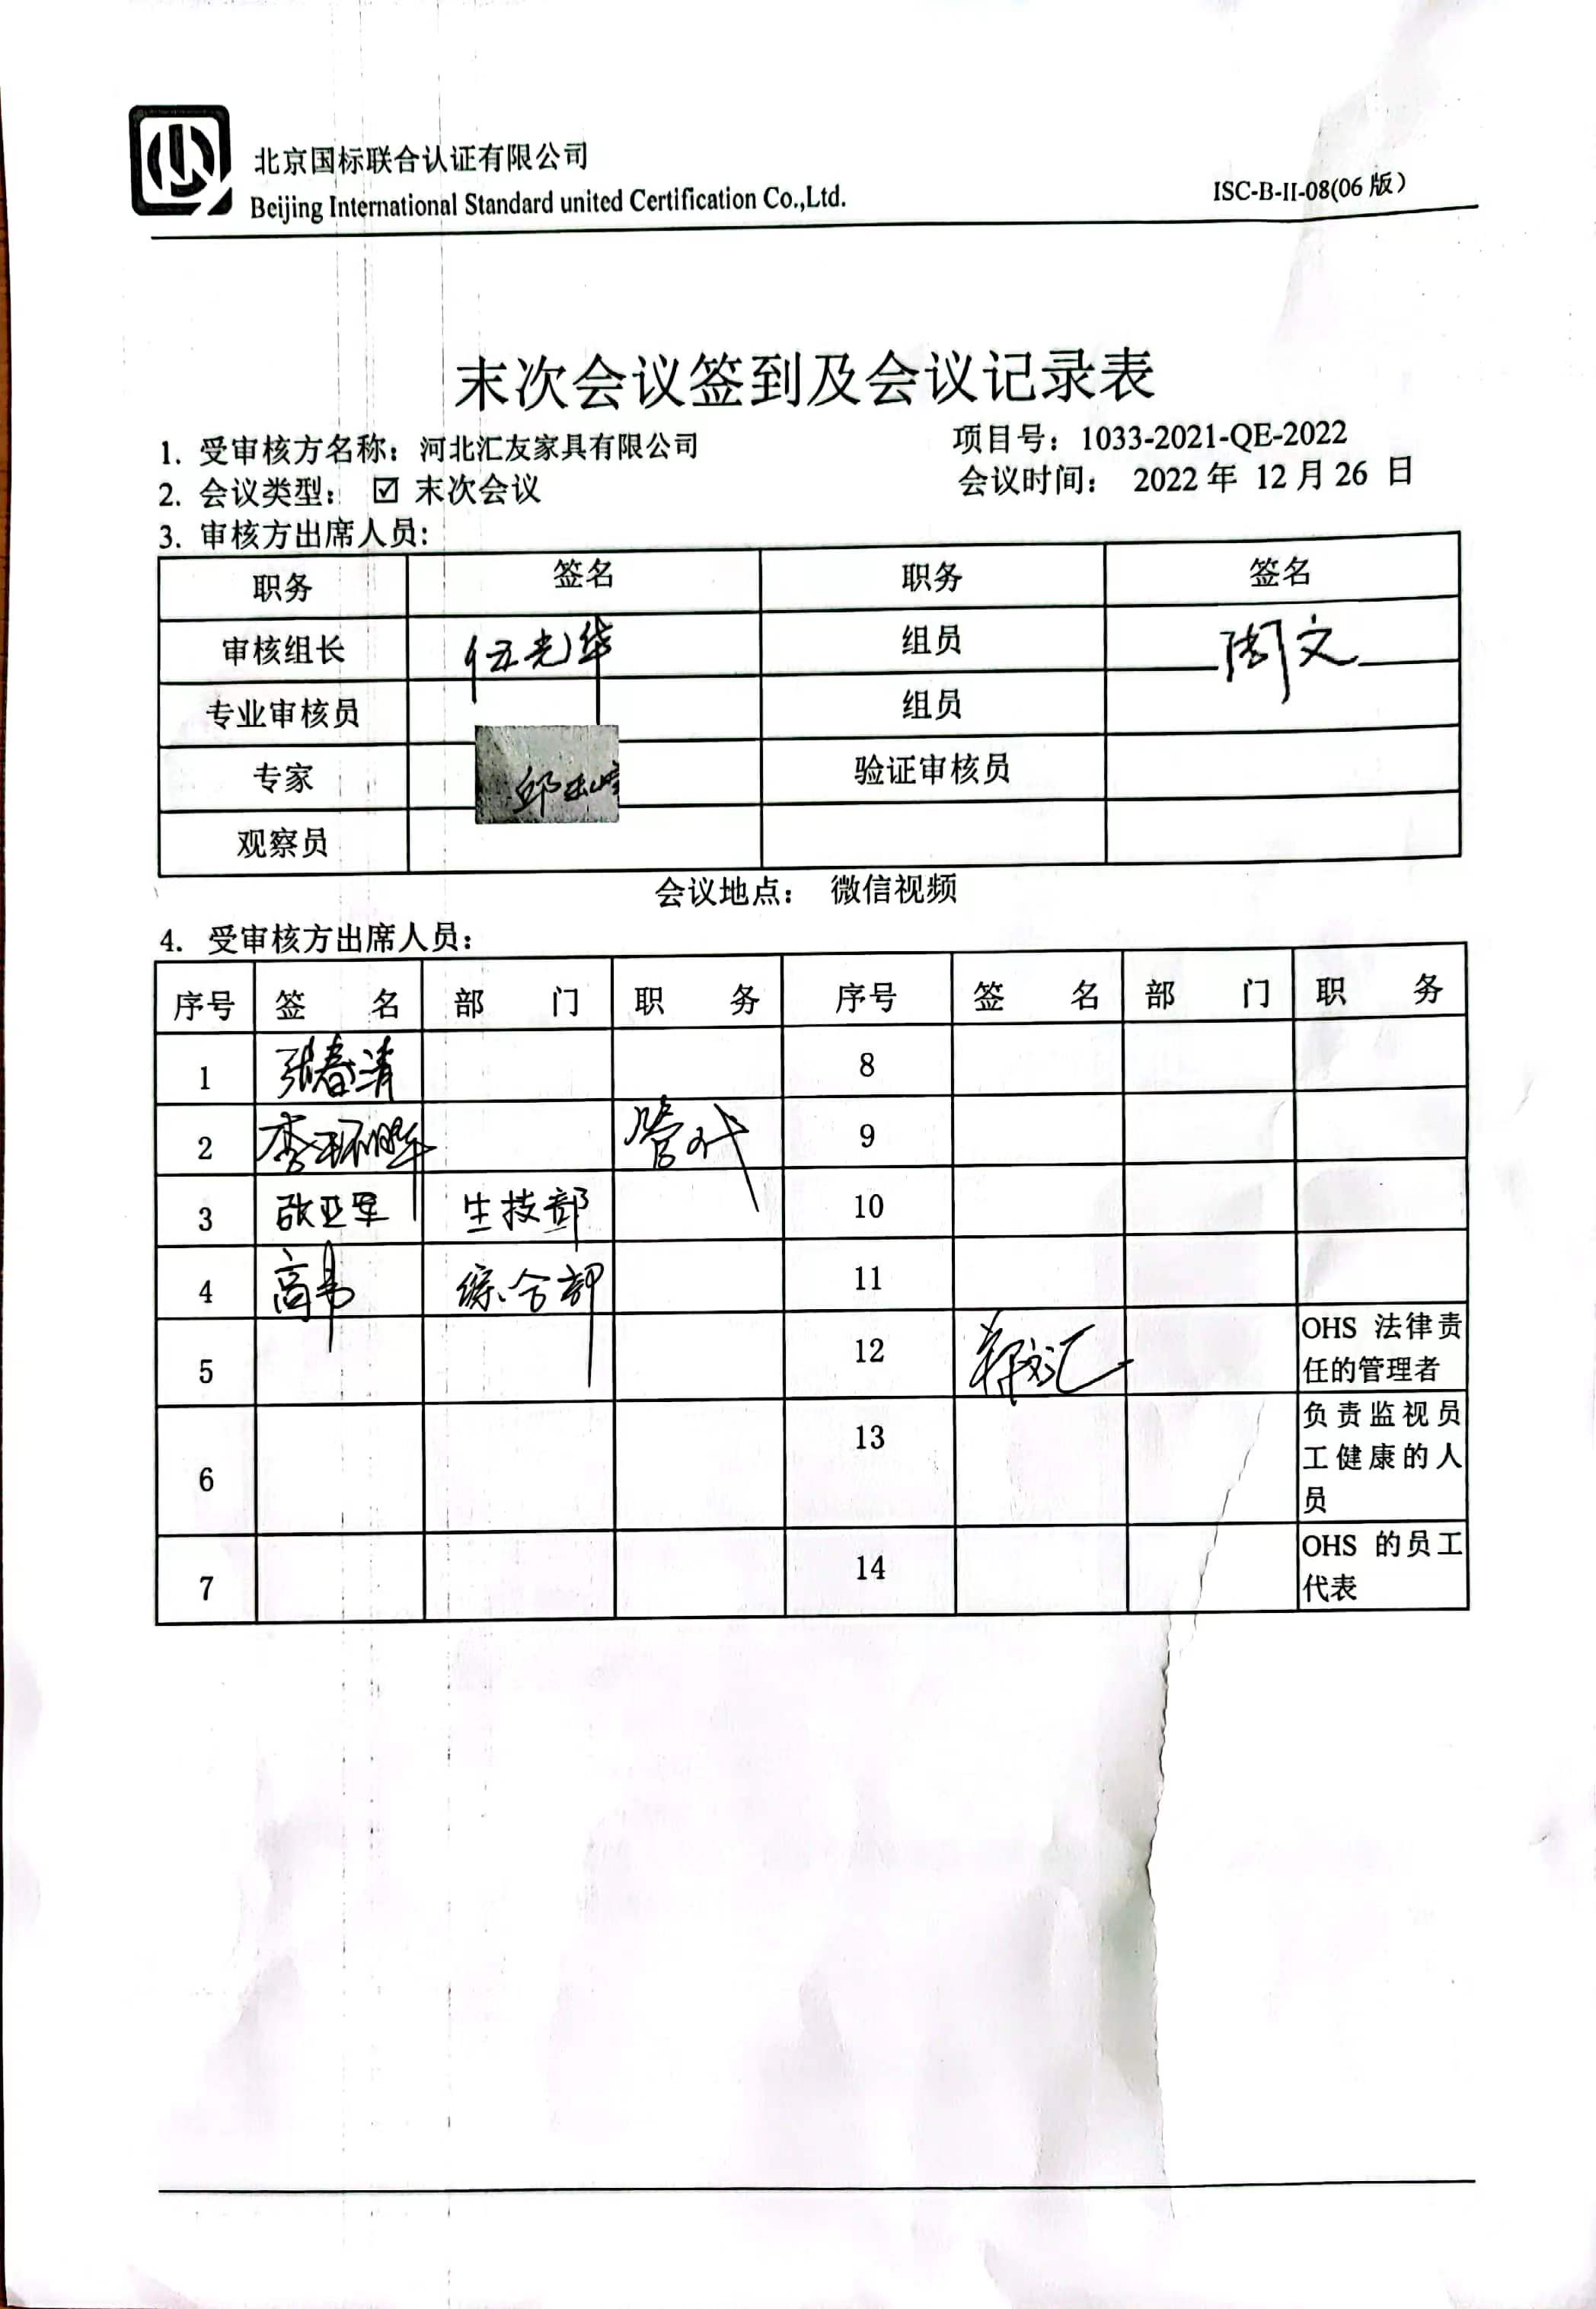 北京国标联合认证有限公司
Beijing International Standard united Certification Co.,Ltd.
ISC-B-II-08(06 版)
末次会议签到及会议记录表
1. 受审核方名称：河北汇友家具有限公司 项目号：1033-2021-QE-2022
2. 会议类型： ☑ 末次会议 会议时间： 2022 年 12 月 26 日
3. 审核方出席人员:
职务 签名 职务 签名
审核组长 伍光华 组员 周文
专业审核员 组员
专家 验证审核员
观察员
会议地点： 微信视频
4. 受审核方出席人员:
序号 签 名 部 门 职 务 序号 签 名 部 门 职 务
1 张春清 8
2 管代 9
3 张亚军 生技部 10
4 综合部 11
5 12 OHS 法律责
任的管理者
6 13 负责监视员
工健康的人
员
7 14 OHS 的员工
代表